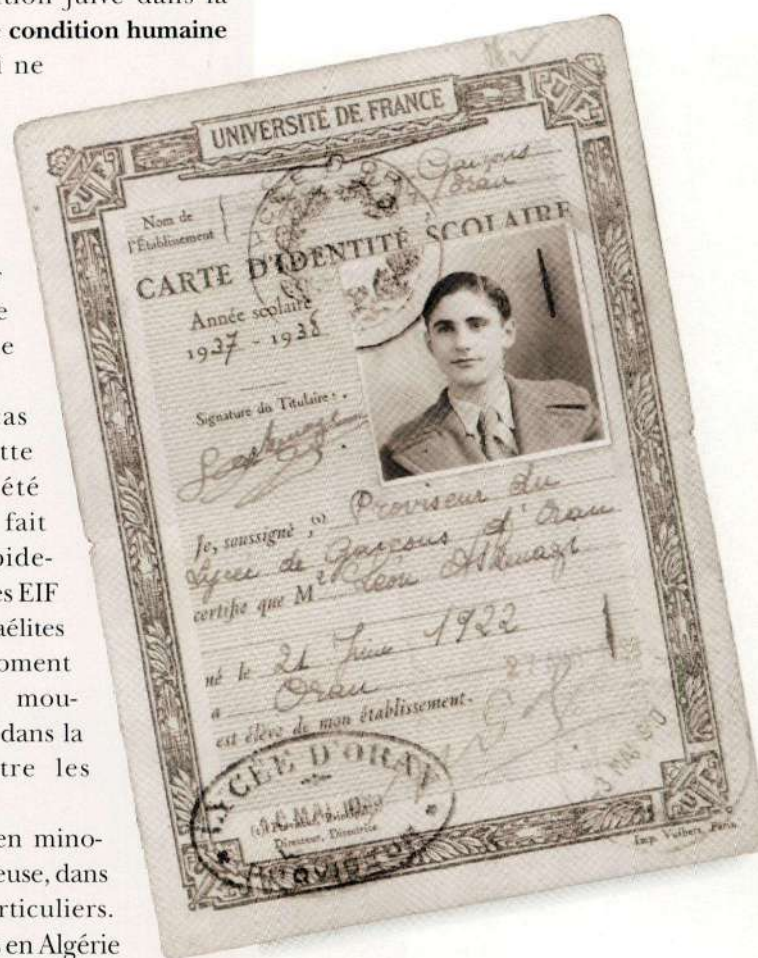 ition juive dans la
condition humaine
i ne
e
e
as
tte
été
fait
pide-
es EIF
aélites
oment
mou-
dans la
tre les
en mino-
euse, dans
rticuliers.
en Algérie
UNIVERSITÉ DE FRANCE
Nom de
l'Établissement
Garçons
Oran
CARTE D'IDENTITÉ SCOLAIRE
Année scolaire
1937 - 1938
Signature du Titulaire :
Je, soussigné, (1) Proviseur du
Lycée de Garçons d'Oran
certifie que Mr Léon Askenazi
né le 21 Juin 1922
a Oran
est élève de mon établissement.
LYCÉE D'ORAN
Directeur, Directrice
PROVISEUR
Imp. Vuibert, Paris